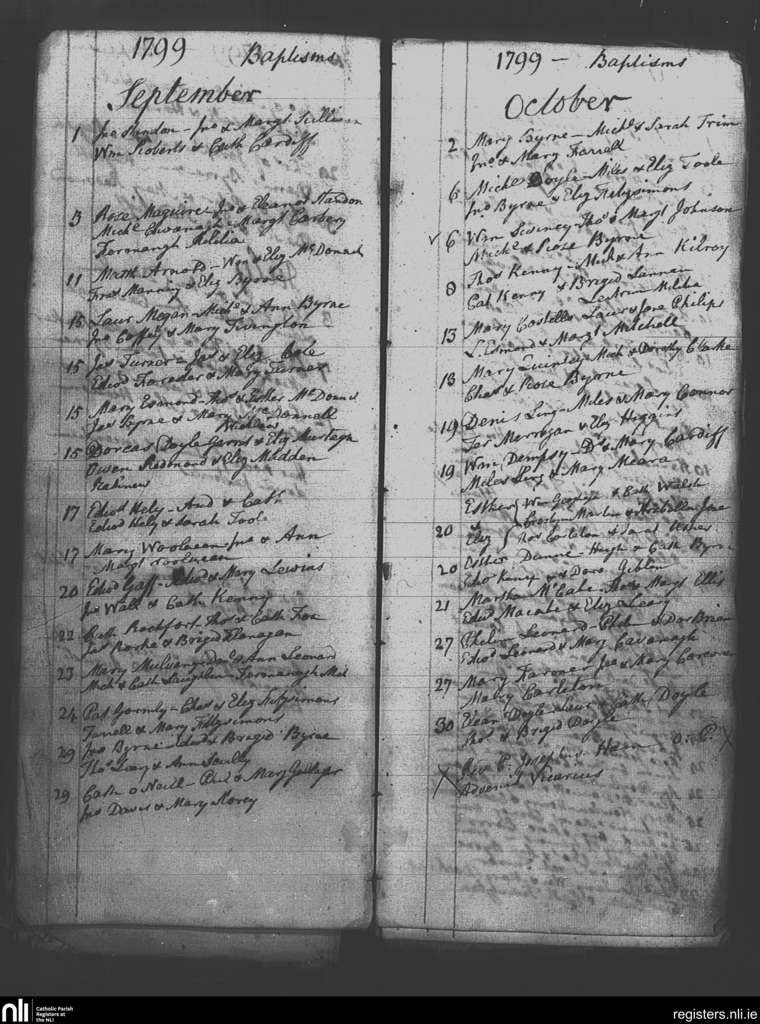 1799 Baptisms
September
1 Jno Handon - Jno & Margt Sullivan
Wm Roberts & Cath Cardiff
3 Rose Maguire - Jno & Eleanor Handon
Michl Chavanagh - Margt Carbery
Feronaugh Militia
11 Matth Arnold - Wm & Eliz McDonnell
Fras Manning & Eliz Byrne
15 Laur Megan - Michl & Ann Byrne
Jno Caffey & Mary
15 Jas Turner - Jas & Eliz Cole
Edwd Farrader & Mary Turner
15 Mary Esmond - Thos & Esther McDonnel
Jas Byrne & Mary McDonnall
Rathnew
15 Dorcas Doyle - Garret & Eliz Murtagh
Owen Redmond & Eliz Madden
Rathnew
17 Edwd Hely - And & Cath
Edwd Hely & Sarah Toole
17 Mary Woolacan - Jno & Ann
Margt Woolacan
20 Edwd Gaff - Edwd & Mary Lewins
Jno Wall & Cath Kenny
22 Cath Rochfort - Thos & Cath Fox
Jas Rorke & Brigid Flanagan
23 Mary & Ann Leonard
Mich & Cath Laughlin - Feronaugh Mil
24 Pat Gormly - Edwd & Eliz Fitzsimons
Farrell & Mary Fitzsimons
29 Jno Byrne - Edwd & Bragid Byrne
Thos Leary & Ann Scully
29 Cath o Neill - & Mary Gallager
Jno Davis & Mary Storey
1799 - Baptisms
October
2 Mary Byrne - Michl & Sarah Trim
Jno & Mary Farrell
6 Michl Doyle - Miles & Eliz Toole
Jno Byrne & Eliz Fitzsimons
6 Wm Sweney - Thos & Margt Johnson
Michl & Rose Byrne
8 Thos Kenny - Mich & Ann Kilroy
Cat Kenny & Brigid Lannan
Leitrim Militia
13 Mary Costello - Laur & Jane Philips
L. Esmond & Margt Mitchell
13 Mary Quinlan - Mich & Dorothy Clarke
Chas & Rose Byrne
19 Denis Ling - Miles & Mary Connor
Jas Morrogan & Eliz Higgins
19 Wm Dempsy - Ds & Mary Cardiff
Miles Ling & Mary Meara
Esther Wm & Cath Walsh
20 & Martin & Arabella Jane
Eliz Thos Carleton & Sarah
20 Esther Dunne - Hugh & Cath Byrne
Edwd & Doro Giblon
21 Martha McCabe - & Margt Ellis
Edwd Macabe & Eliz Leary
27 Phelim Leonard - & Dor Brien
Edwd Leonard & Mary Cavanagh
27 Mary Farone - Jno & Mary Corcoran
Mary Carleton
30 Elean Doyle - Laur & Cath Doyle
Thos & Brigid Doyle
X Rev F. Josephus Ham O. C. X
Advenit Vicarius
nli
Catholic Parish
Registers at
the NLI
registers.nli.ie